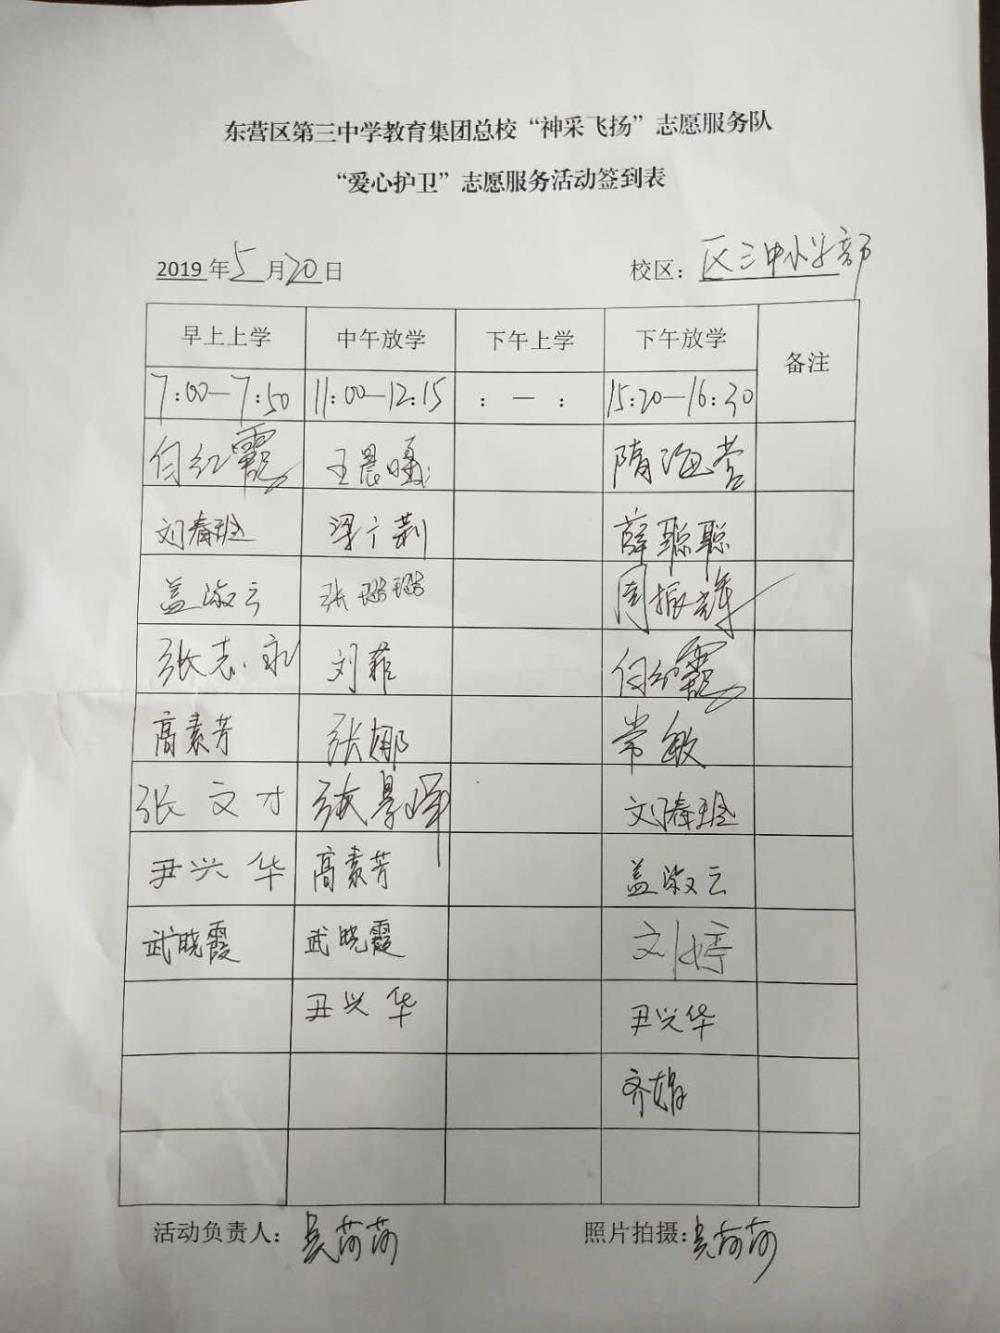 东营区第三中学教育集团总校“神采飞扬”志愿服务队
“爱心护卫”志愿服务活动签到表
2019年5月20日 校区：区三中小学部
早上上学 中午放学 下午上学 下午放学 备注
7:00—7:50 11:00—12:15 :—: 15:20—16:30
白红霞 王晨曦 隋海营
刘春玲 梁广莉 薛聪聪
盖淑云 张璐璐 周振辉
张志永 刘菲 白红霞
高素芳 张娜 常敏
张文才 张景晖 刘春玲
尹兴华 高素芳 盖淑云
武晓霞 武晓霞 刘婷
尹兴华 尹兴华
齐娟
活动负责人：吴莎莎 照片拍摄：吴莎莎